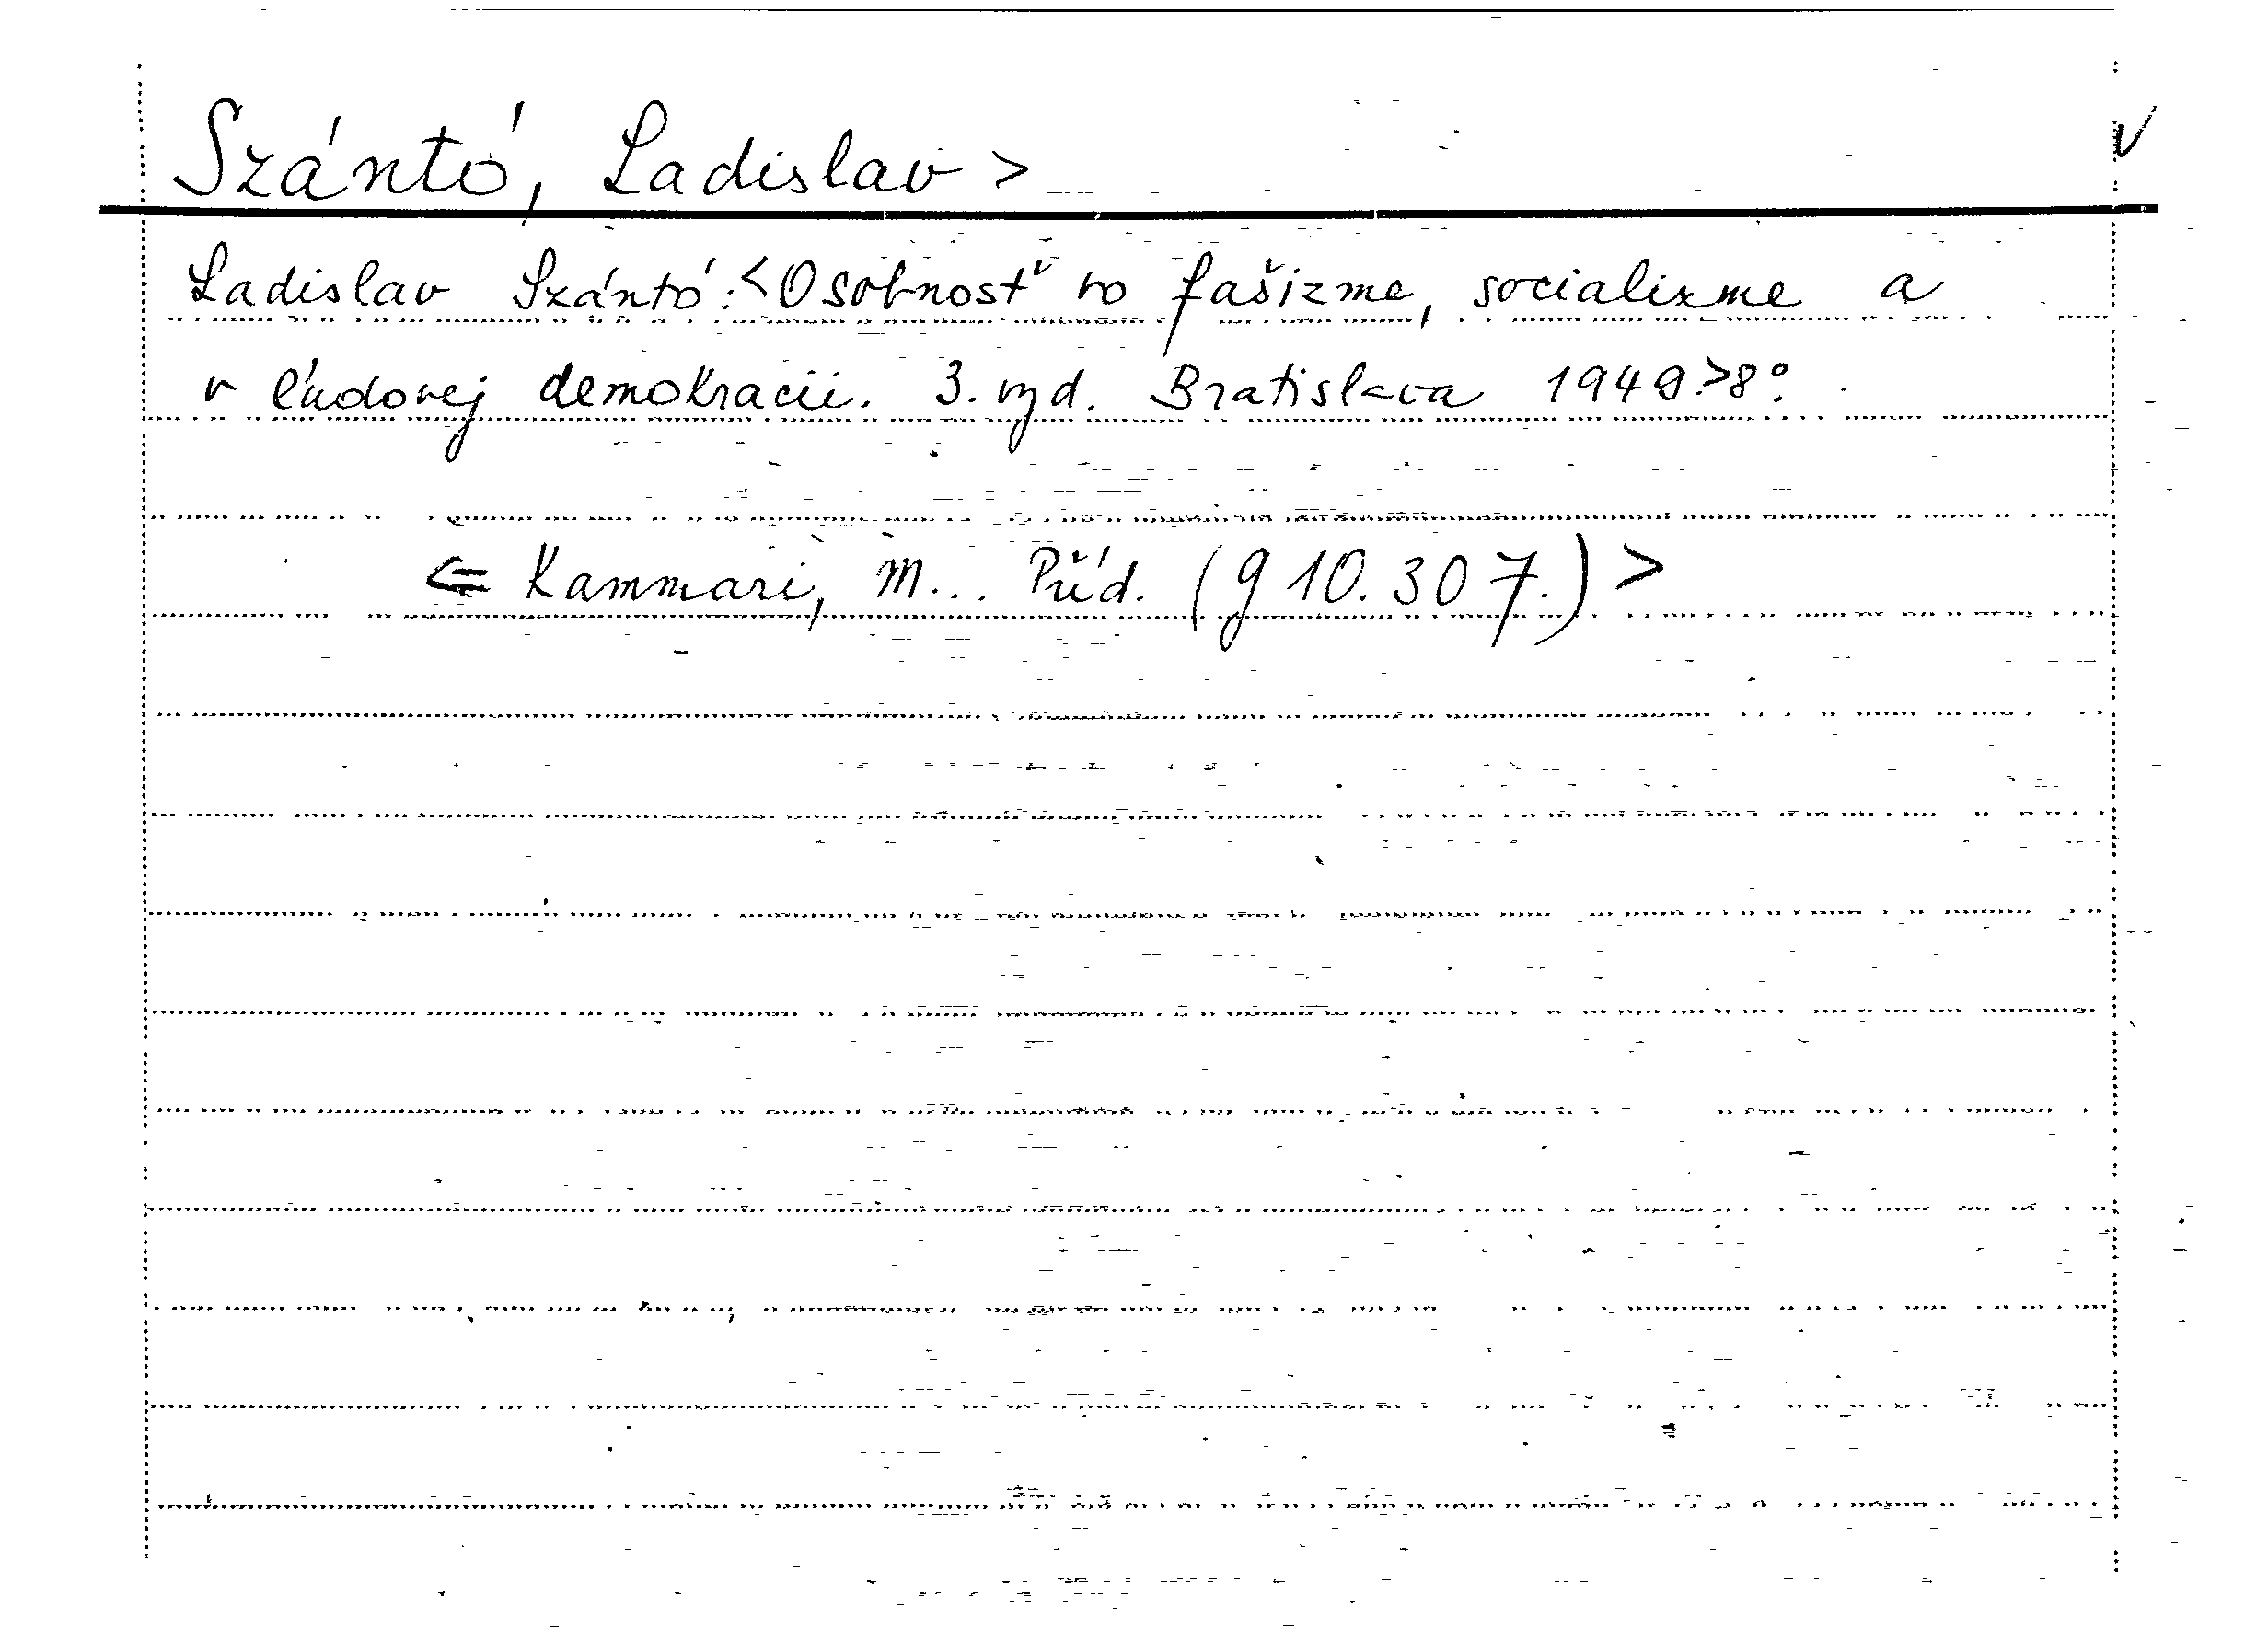 Szántó, Ladislav > v
Ladislav Szántó: <Osobnosť vo fašizme, socializme a
v ľudovej demokracii. 3. vyd. Bratislava 1949.>8°.
<= Kammari, M... Příd. (g 10.307.) >